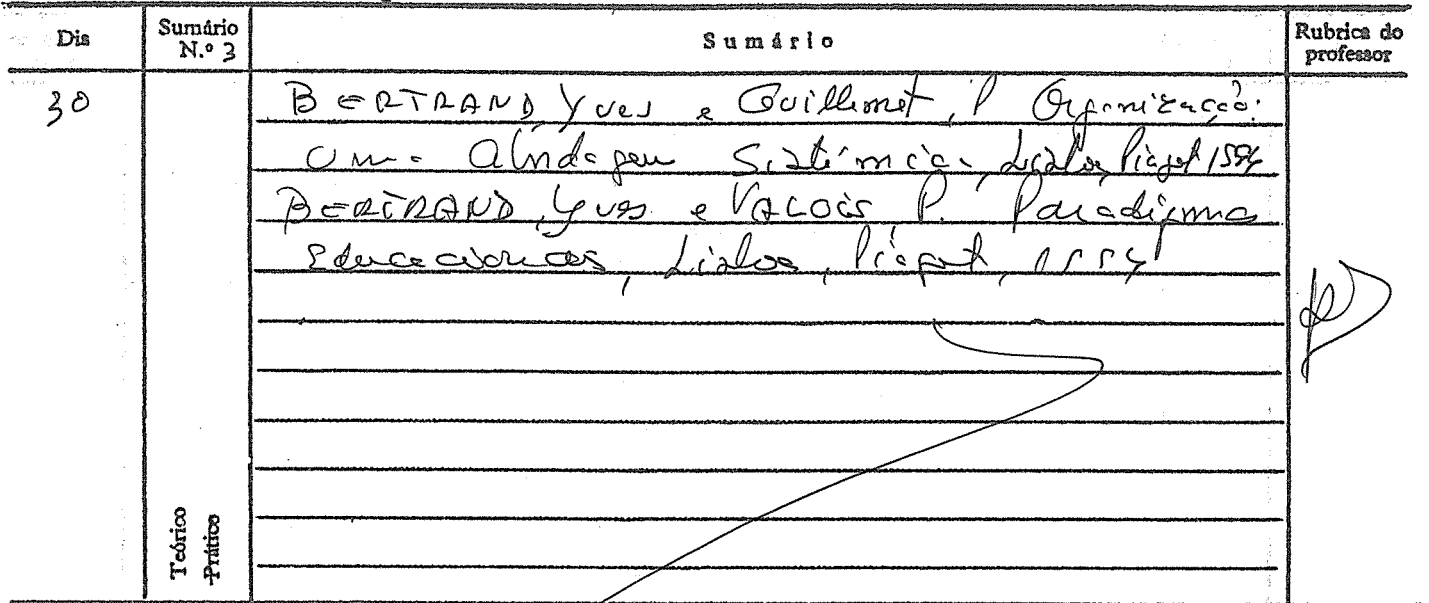 Dia
Sumário N.º 3
Sumário
Rubrica do professor
30
BERTRAND, Yves e Guillemet, P Organização:
uma abordagem Sistémica, Lisboa, Piaget 1994
BERTRAND, Yves e VALOIS P. Paradigmas
Educacionais, Lisboa, Piaget, 1994
Teórico
Prático